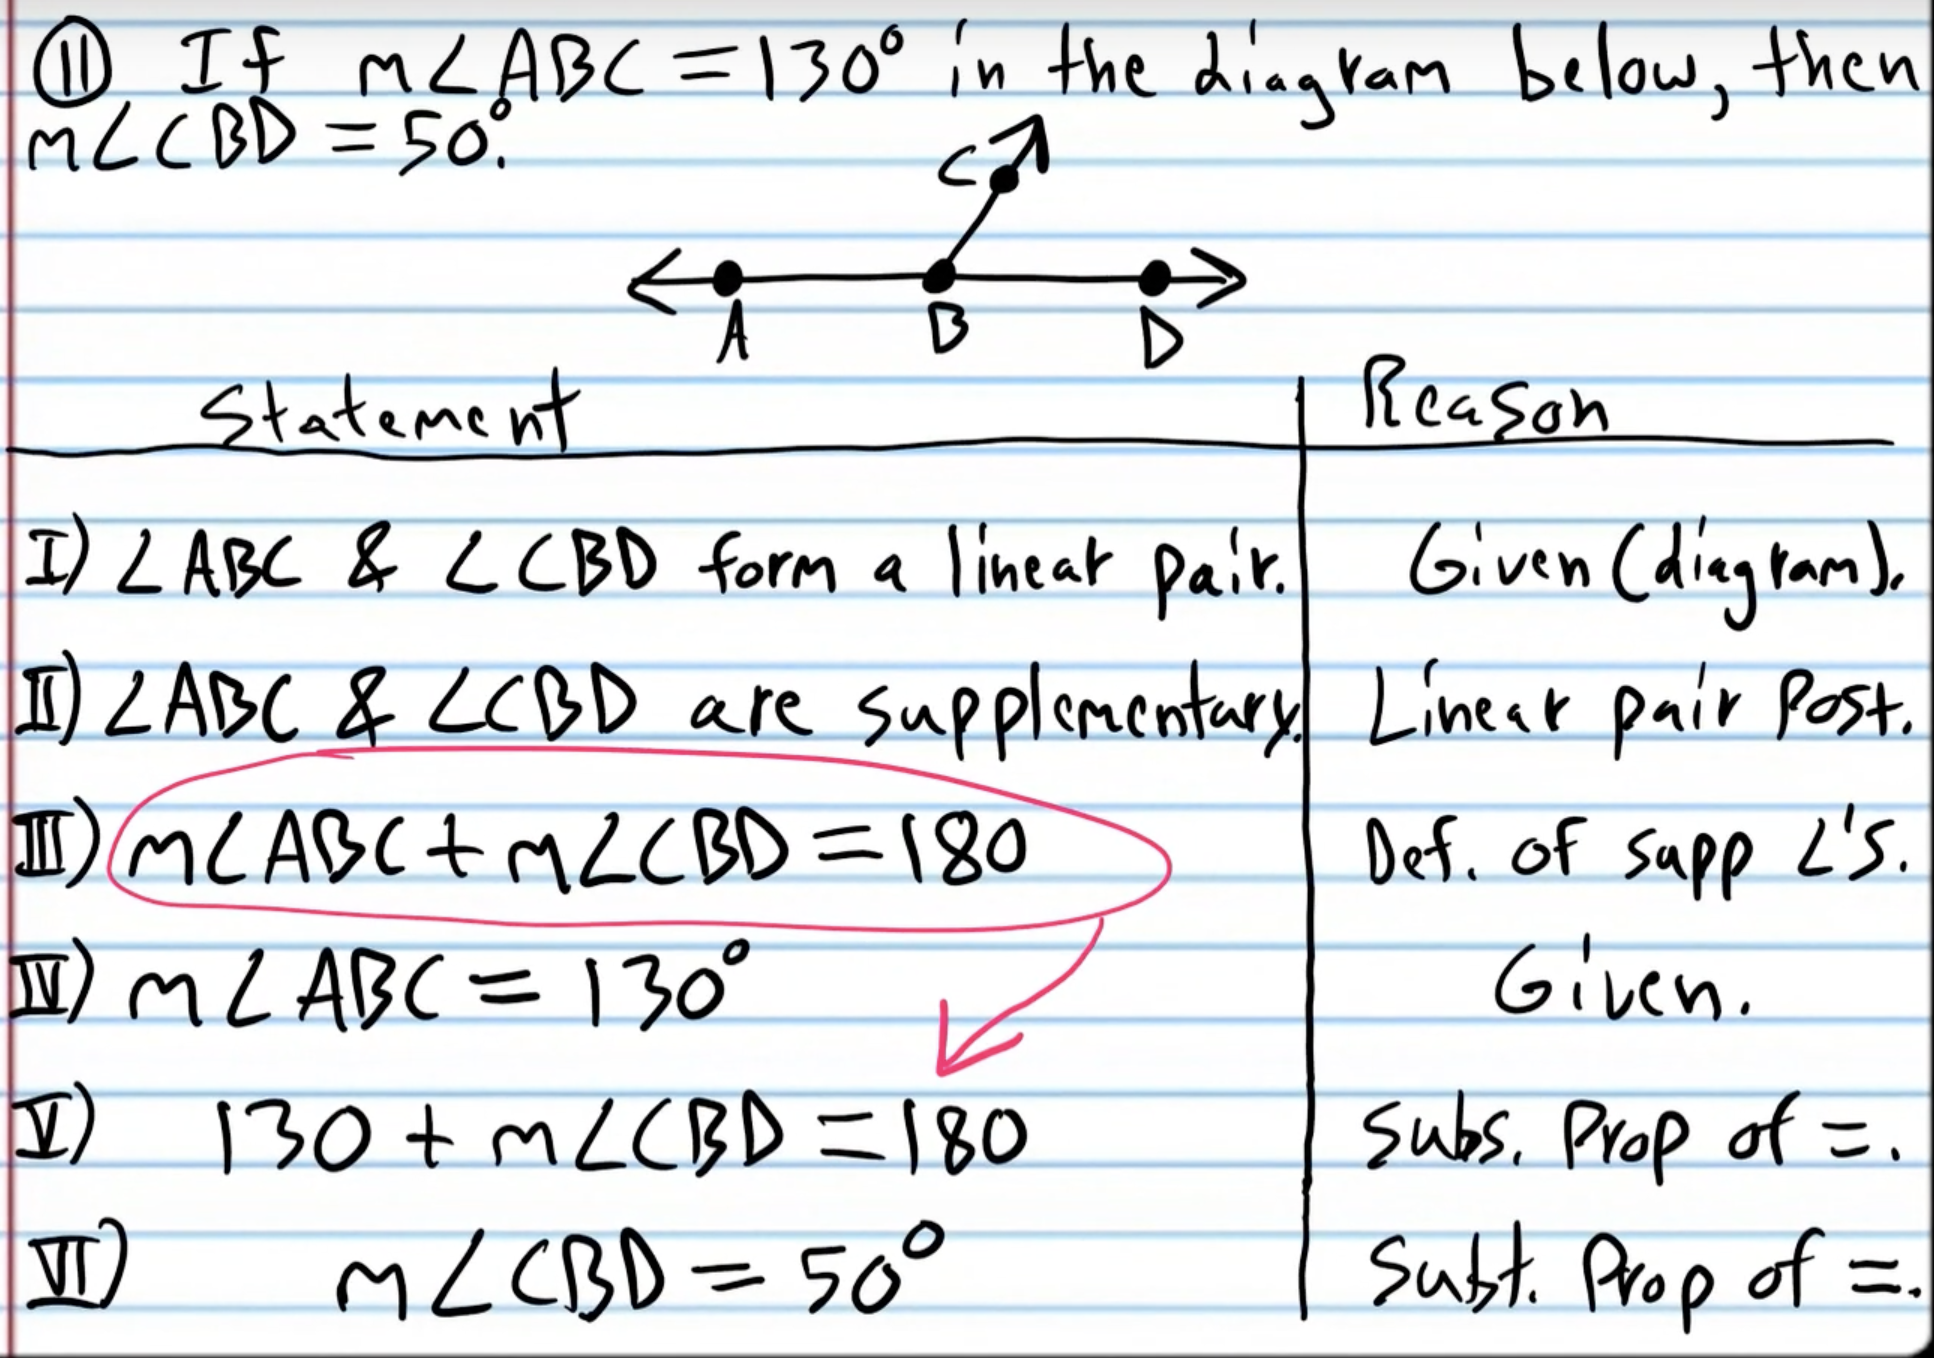 ⑪ If m∠ABC = 130° in the diagram below, then
m∠CBD = 50°.
C
A B D
Statement Reason
I) ∠ABC & ∠CBD form a linear pair. Given (diagram).
II) ∠ABC & ∠CBD are supplementary. Linear pair Post.
III) m∠ABC + m∠CBD = 180 Def. of supp ∠'s.
IV) m∠ABC = 130° Given.
V) 130 + m∠CBD = 180 Subs. Prop of =.
VI) m∠CBD = 50° Subt. Prop of =.